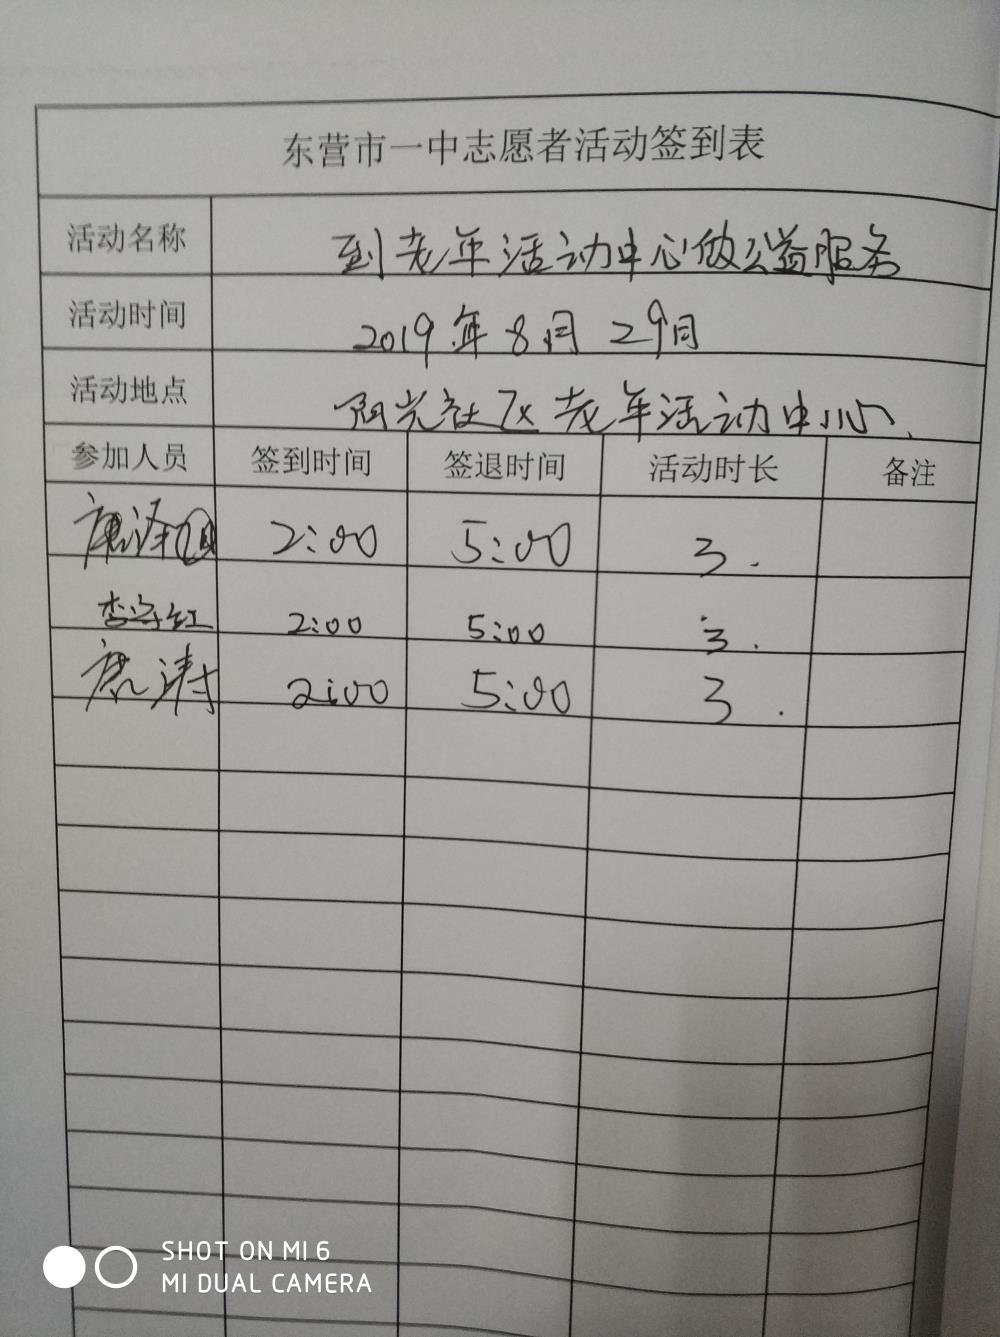 东营市一中志愿者活动签到表
活动名称 到老年活动中心做公益服务
活动时间 2019年8月29日
活动地点 阳光社区老年活动中心
参加人员 签到时间 签退时间 活动时长 备注
2:00 5:00 3.
李守红 2:00 5:00 3.
2:00 5:00 3.
SHOT ON MI 6
MI DUAL CAMERA